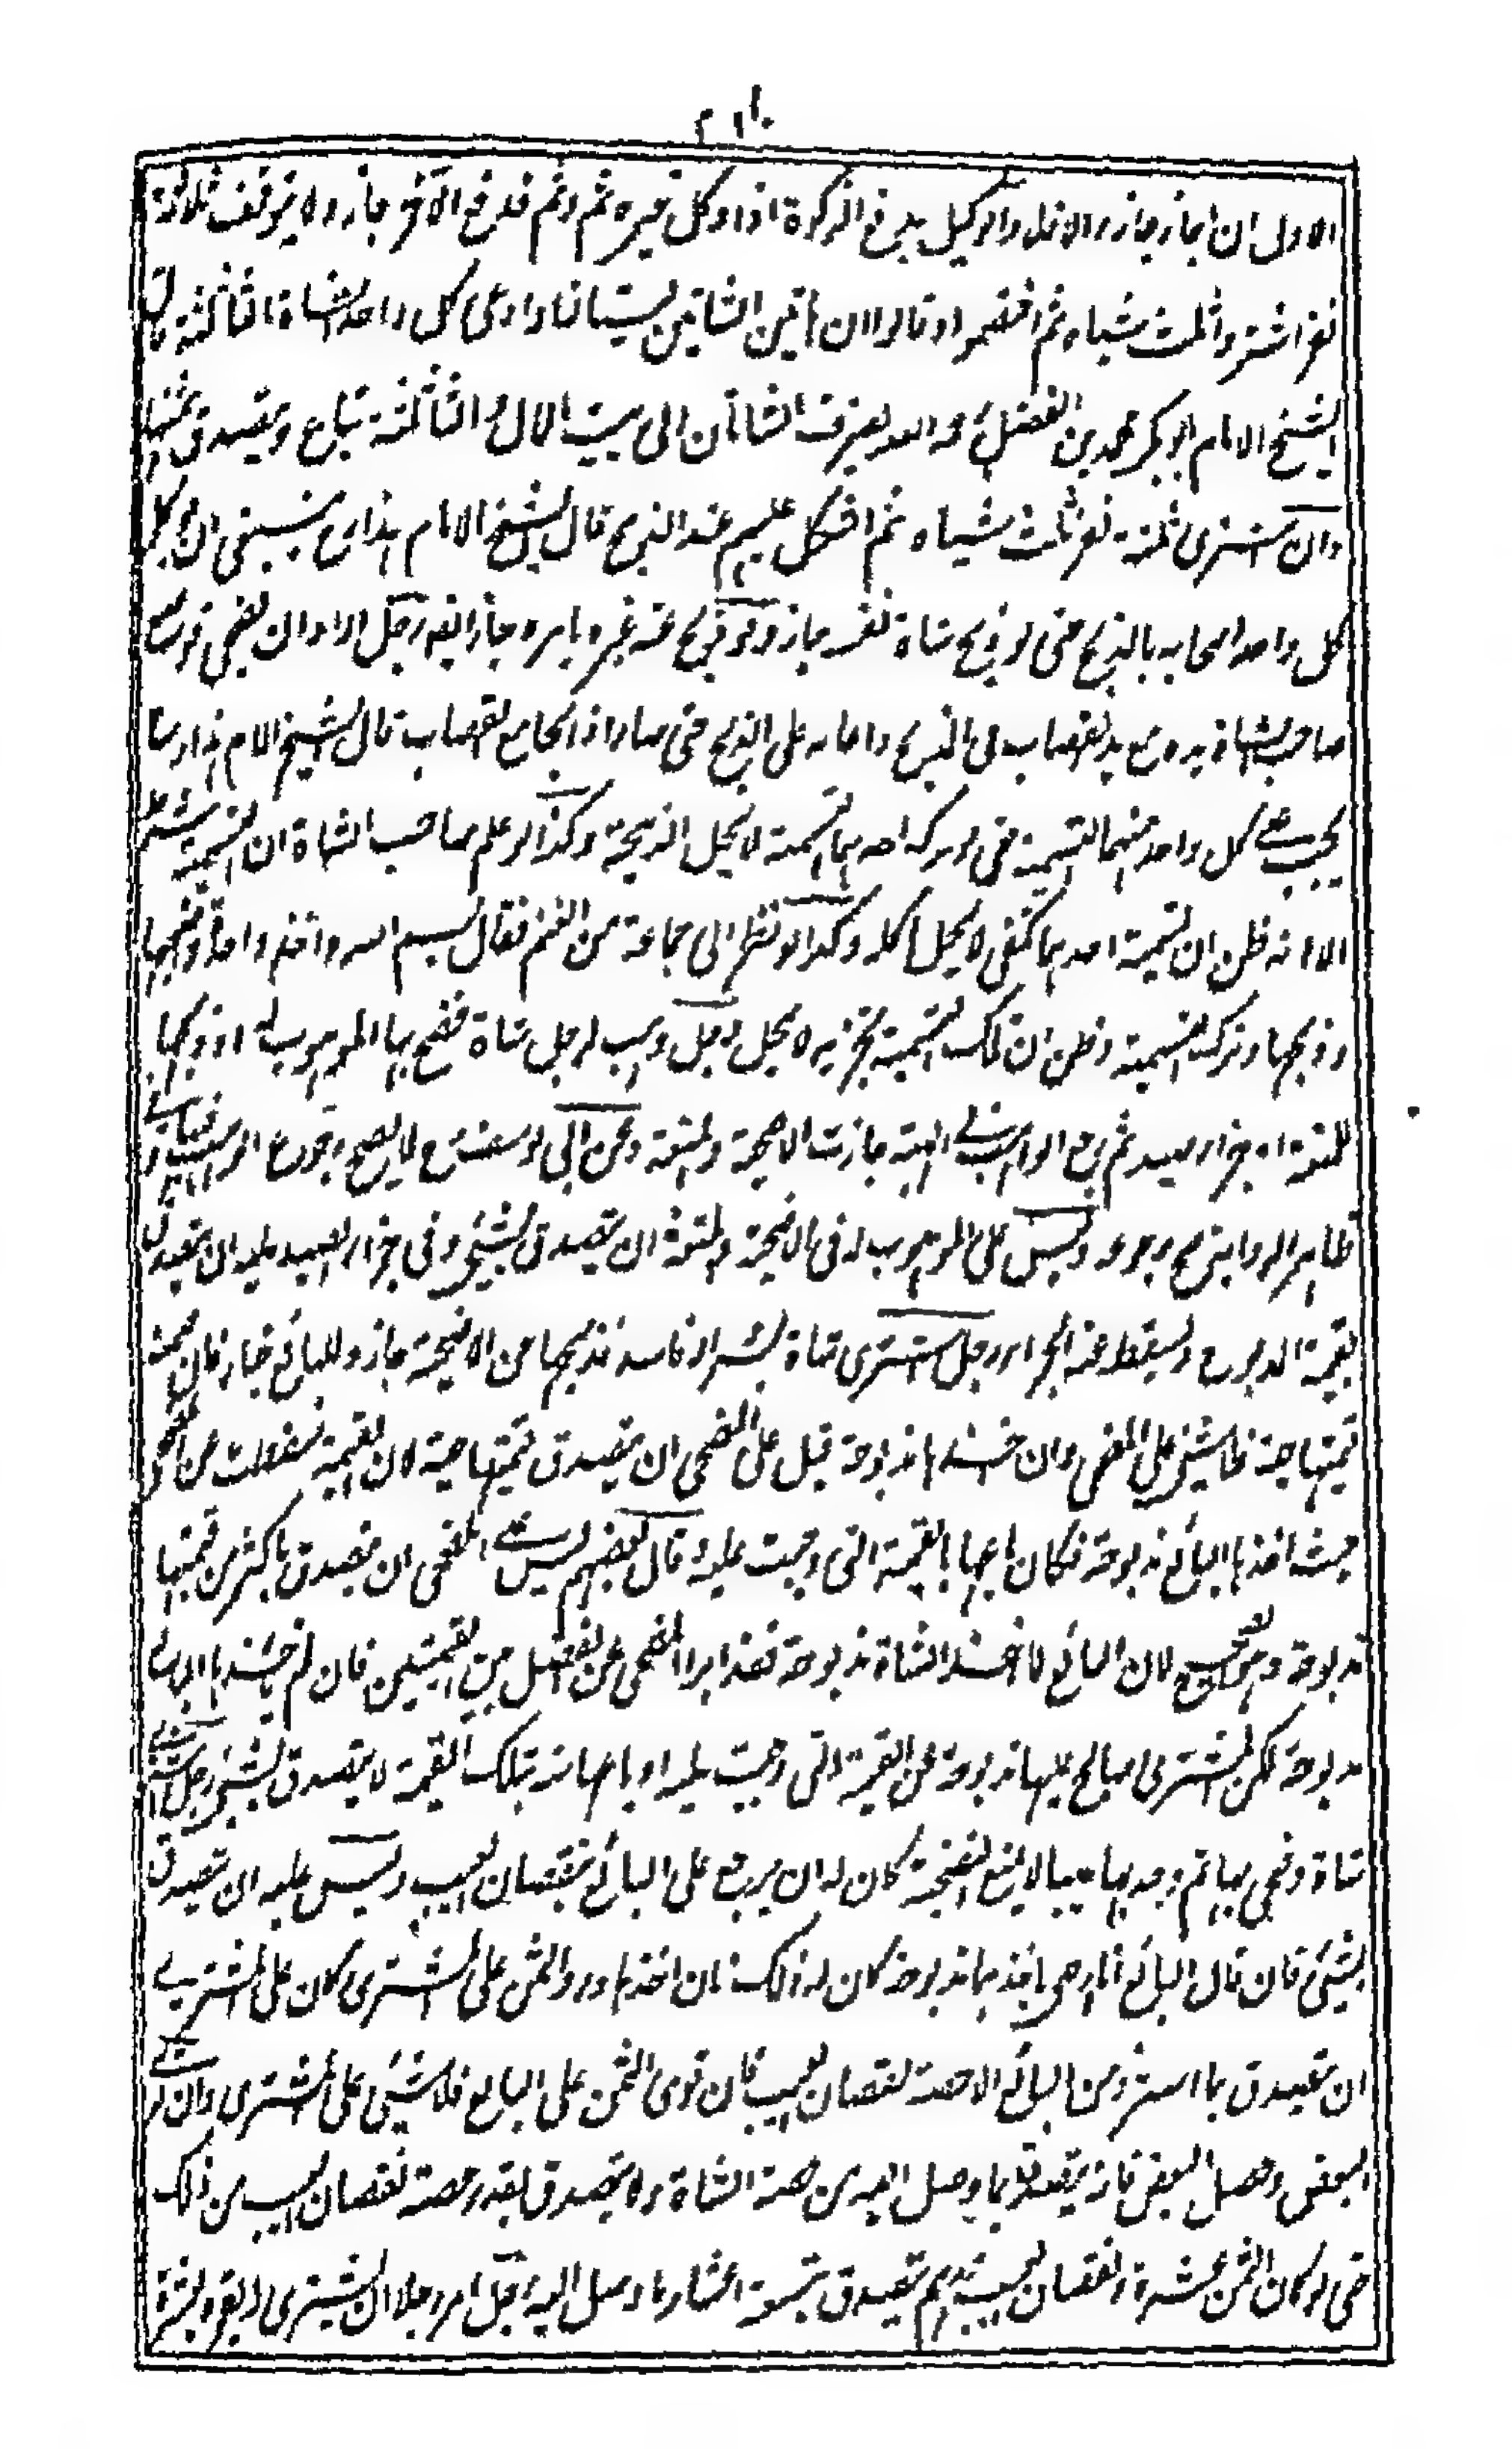 الاول ان اجاز جاز والا فلا والوكيل بدفع الزكوة اذا وكل غيره ثم وثم فدفع الآخر جاز ولا يتوقف ثلاثة
نفر اشتروا ثلث شياه ثم اختصموا وقالوا ان الشاتين ليستا لنا وادعى كل واحد الشاة الثالثة قال
الشيخ الامام ابو بكر محمد بن الفضل رحمه الله يصرف الشاتان الى بيت المال والثالثة تباع ويتصدق بثمنها
وان اشترى ثلثة نفر ثلث شياه ثم اشكل عليهم عند الذبح قال الشيخ الامام هذا رح ينبغي ان يوكل
كل واحد اصحابه بالذبح حتى لو ذبح شاة نفسه جاز ولو ذبح عنه غيره بامره جاز ايضا رجل اراد ان يضحي فوضع
صاحب الشاة يده مع يد القصاب في الذبح واعانه على الذبح حتى صار ذابحا مع القصاب قال الشيخ الامام هذا رح
يجب على كل واحد منهما التسمية حتى لو ترك احدهما التسمية لا يحل الذبيحة وكذا لو علم صاحب الشاة ان التسمية شرط
الا انه ظن ان تسمية احدهما تكفي لا يحل اكله وكذا لو نظر الى جماعة من الغنم فقال بسم الله واخذ واحدة واضجعها
وذبحها وترك التسمية وظن ان تلك التسمية تجزيه لا يحل رجل وهب لرجل شاة فضحى بها الموهوب له او ذبحها
للمتعة او جزاء صيد ثم رجع الواهب في الهبة جازت الاضحية والمتعة وعن ابي يوسف رح لا يصح رجوع الواهب في
ظاهر الرواية صح رجوعه وليس على الموهوب له في الاضحية والمتعة ان يتصدق بشيء وفي جزاء الصيد عليه ان يتصدق
بقيمة المذبوح ويسقط عنه الجزاء رجل اشترى شاة بشراء فاسد فذبحها عن الاضحية جاز وللبائع خيار فان ضمنه
قيمتها حية فلا شيء على المضحي وان اخذها مذبوحة قيل على المضحي ان يتصدق بقيمتها حية لان القيمة سقطت عن المضحي
حيث اخذها البائع مذبوحة فكان باعها بالقيمة التي وجبت عليه وقال بعضهم ليس على المضحي ان يتصدق باكثر من قيمتها
مذبوحة وهو الصحيح لان البائع لما اخذ الشاة مذبوحة فقد ابرا المضحي عن الفضل بين القيمتين فان لم ياخذها البائع
مذبوحة لكن المشتري صالح عليها مذبوحة عن القيمة التي وجبت عليه او باعها منه بتلك القيمة لا يتصدق بشيء رجل اشترى
شاة وضحى بها ثم وجد بها عيبا لا يمنع التضحية كان له ان يرجع على البائع بنقصان العيب وليس عليه ان يتصدق
بشيء فان قال البائع انا ارضى باخذها مذبوحة كان له ذلك فان اخذها ورد الثمن على المشتري كان على المشتري
ان يتصدق بما استرد من البائع الا حصة نقصان العيب فان توى الثمن على البائع فلا شيء على المشتري وان توى
البعض وحصل البعض فانه يتصدق بما وصل اليه من حصة الشاة ولا يتصدق بقدر حصة نقصان العيب من ذلك
حتى لو كان الثمن عشرة ونقصان العيب درهم يتصدق بتسعة اعشار ما وصل اليه رجل امر رجلا ان يشتري له بقرة بعشرة